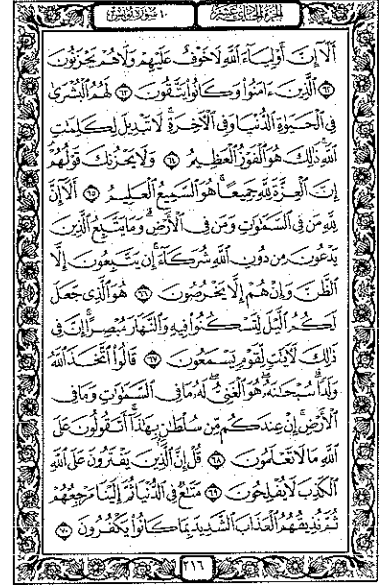 الجزء الحادي عشر
١٠ سورة يونس
أَلَآ إِنَّ أَوْلِيَآءَ ٱللَّهِ لَا خَوْفٌ عَلَيْهِمْ وَلَا هُمْ يَحْزَنُونَ
٦٢ ٱلَّذِينَ ءَامَنُوا۟ وَكَانُوا۟ يَتَّقُونَ ٦٣ لَهُمُ ٱلْبُشْرَىٰ
فِى ٱلْحَيَوٰةِ ٱلدُّنْيَا وَفِى ٱلْـَٔاخِرَةِ ۚ لَا تَبْدِيلَ لِكَلِمَـٰتِ
ٱللَّهِ ۚ ذَٰلِكَ هُوَ ٱلْفَوْزُ ٱلْعَظِيمُ ٦٤ وَلَا يَحْزُنكَ قَوْلُهُمْ ۘ
إِنَّ ٱلْعِزَّةَ لِلَّهِ جَمِيعًا ۚ هُوَ ٱلسَّمِيعُ ٱلْعَلِيمُ ٦٥ أَلَآ إِنَّ
لِلَّهِ مَن فِى ٱلسَّمَـٰوَٰتِ وَمَن فِى ٱلْأَرْضِ ۗ وَمَا يَتَّبِعُ ٱلَّذِينَ
يَدْعُونَ مِن دُونِ ٱللَّهِ شُرَكَآءَ ۚ إِن يَتَّبِعُونَ إِلَّا
ٱلظَّنَّ وَإِنْ هُمْ إِلَّا يَخْرُصُونَ ٦٦ هُوَ ٱلَّذِى جَعَلَ
لَكُمُ ٱلَّيْلَ لِتَسْكُنُوا۟ فِيهِ وَٱلنَّهَارَ مُبْصِرًا ۚ إِنَّ فِى
ذَٰلِكَ لَـَٔايَـٰتٍ لِّقَوْمٍ يَسْمَعُونَ ٦٧ قَالُوا۟ ٱتَّخَذَ ٱللَّهُ
وَلَدًا ۗ سُبْحَـٰنَهُۥ ۖ هُوَ ٱلْغَنِىُّ ۖ لَهُۥ مَا فِى ٱلسَّمَـٰوَٰتِ وَمَا فِى
ٱلْأَرْضِ ۚ إِنْ عِندَكُم مِّن سُلْطَـٰنٍۭ بِهَـٰذَآ ۚ أَتَقُولُونَ عَلَى
ٱللَّهِ مَا لَا تَعْلَمُونَ ٦٨ قُلْ إِنَّ ٱلَّذِينَ يَفْتَرُونَ عَلَى ٱللَّهِ
ٱلْكَذِبَ لَا يُفْلِحُونَ ٦٩ مَتَـٰعٌ فِى ٱلدُّنْيَا ثُمَّ إِلَيْنَا مَرْجِعُهُمْ
ثُمَّ نُذِيقُهُمُ ٱلْعَذَابَ ٱلشَّدِيدَ بِمَا كَانُوا۟ يَكْفُرُونَ ٧٠
٢١٦